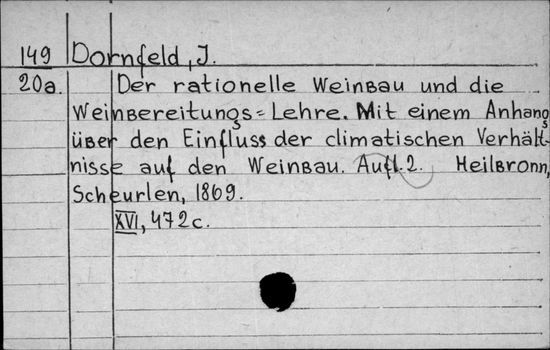 149 Dornfeld, J.
20a. Der rationelle Weinbau und die
Weinbereitungs=Lehre. Mit einem Anhang
über den Einfluss der climatischen Verhält-
nisse auf den Weinbau. Aufl. 2. Heilbronn,
Scheurlen, 1869.
XVI, 472 c.